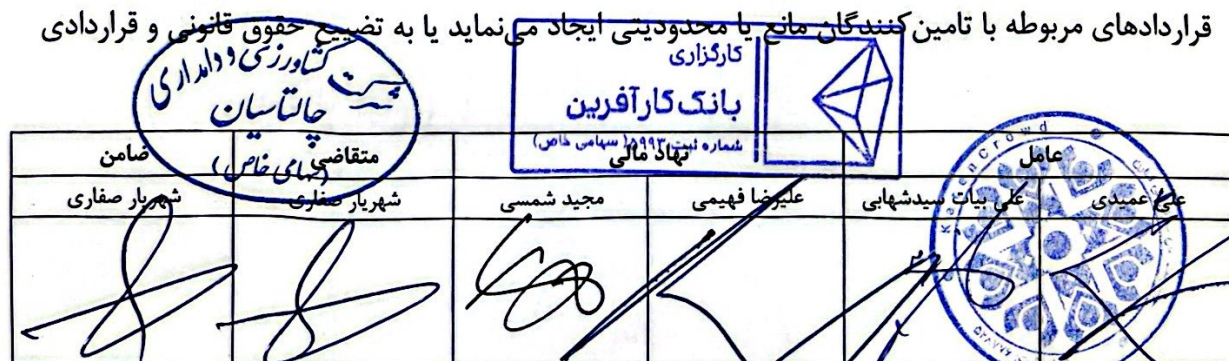 قراردادهای مربوطه با تامین‌کنندگان مانع یا محدودیتی ایجاد می‌نماید یا به تضییع حقوق قانونی و قراردادی
شرکت کشاورزی و دامداری
چالتاسیان
(سهامی خاص)
کارگزاری
بانک کارآفرین
شماره ثبت (سهامی خاص)
KarenCrowd
عامل نهاد مالی متقاضی ضامن
علی عمیدی علی بیات سیدشهابی علیرضا فهیمی مجید شمسی شهریار صفاری شهریار صفاری